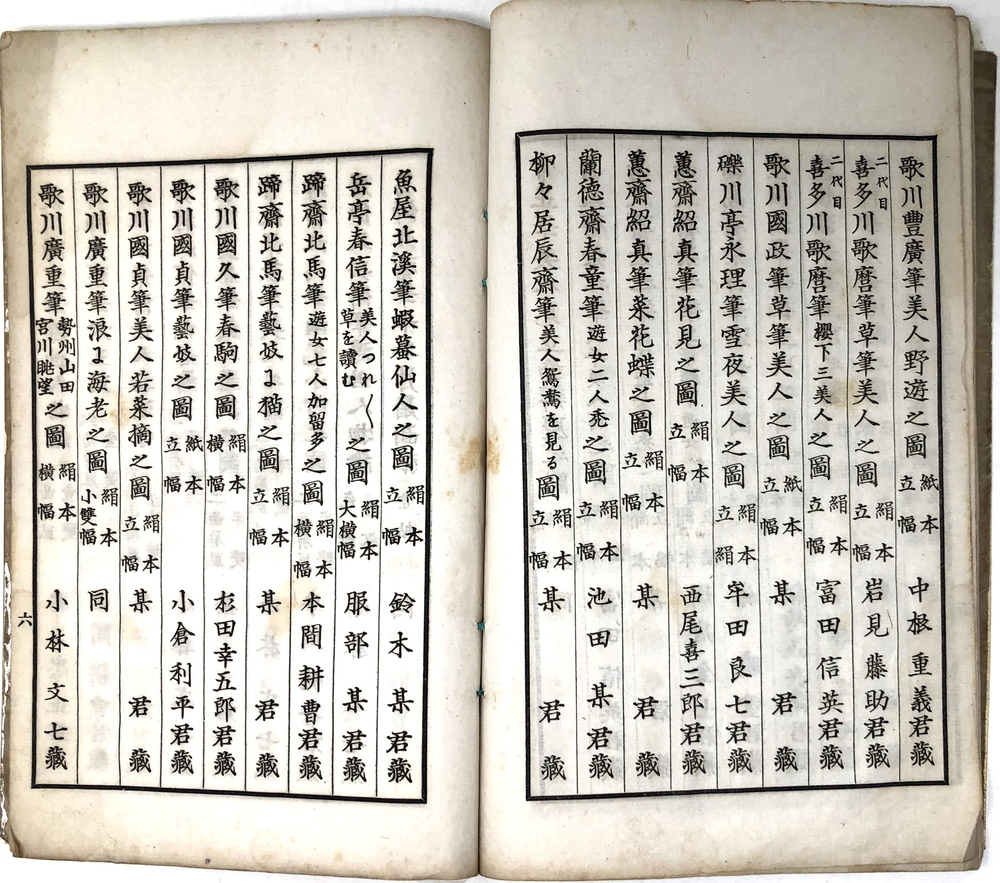 歌川豊廣筆美人野遊之圖 紙本立幅 中根重義君藏
二代目喜多川歌麿筆草筆美人之圖 絹本立幅 岩見藤助君藏
二代目喜多川歌麿筆櫻下三美人之圖 絹本立幅 富田信英君藏
歌川國政筆草筆美人之圖 紙本立幅 某君藏
礫川亭永理筆雪夜美人之圖 絹本立絹 牟田良七君藏
蕙齋紹真筆花見之圖 絹本立幅 西尾喜三郎君藏
蕙齋紹真筆菜花蝶之圖 絹本立幅 某君藏
蘭德齋春童筆遊女二人禿之圖 絹本立幅 池田某君藏
柳々居辰齋筆美人鴛鴦を見る圖 絹本立幅 某君藏
魚屋北溪筆蝦蟇仙人之圖 絹本立幅 鈴木某君藏
岳亭春信筆美人つれ〱草を讀む之圖 絹本大横幅 服部某君藏
蹄齋北馬筆遊女七人加留多之圖 絹本横幅 本間耕曹君藏
蹄齋北馬筆藝妓に猫之圖 絹本立幅 某君藏
歌川國久筆春駒之圖 絹本横幅 杉田幸五郎君藏
歌川國貞筆藝妓之圖 紙本立幅 小倉利平君藏
歌川國貞筆美人若菜摘之圖 絹本立幅 某君藏
歌川廣重筆浪に海老之圖 絹本小雙幅 同
歌川廣重筆勢州山田宮川眺望之圖 絹本横幅 小林文七藏
六